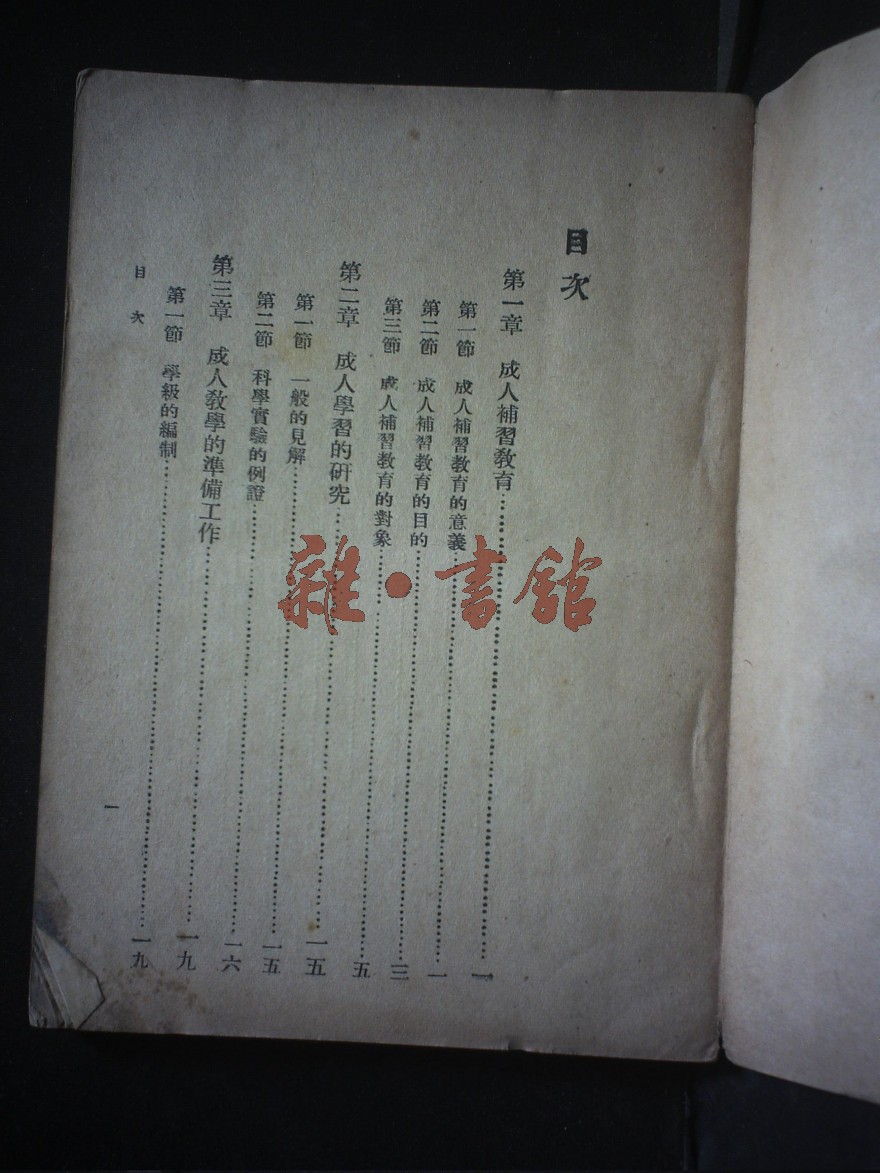 目次
第一章 成人補習教育……一
第一節 成人補習教育的意義……一
第二節 成人補習教育的目的……三
第三節 成人補習教育的對象……五
第二章 成人學習的研究……一五
第一節 一般的見解……一五
第二節 科學實驗的例證……一六
第三章 成人教學的準備工作……一九
第一節 學級的編制……一九
目次
一
雜·書館